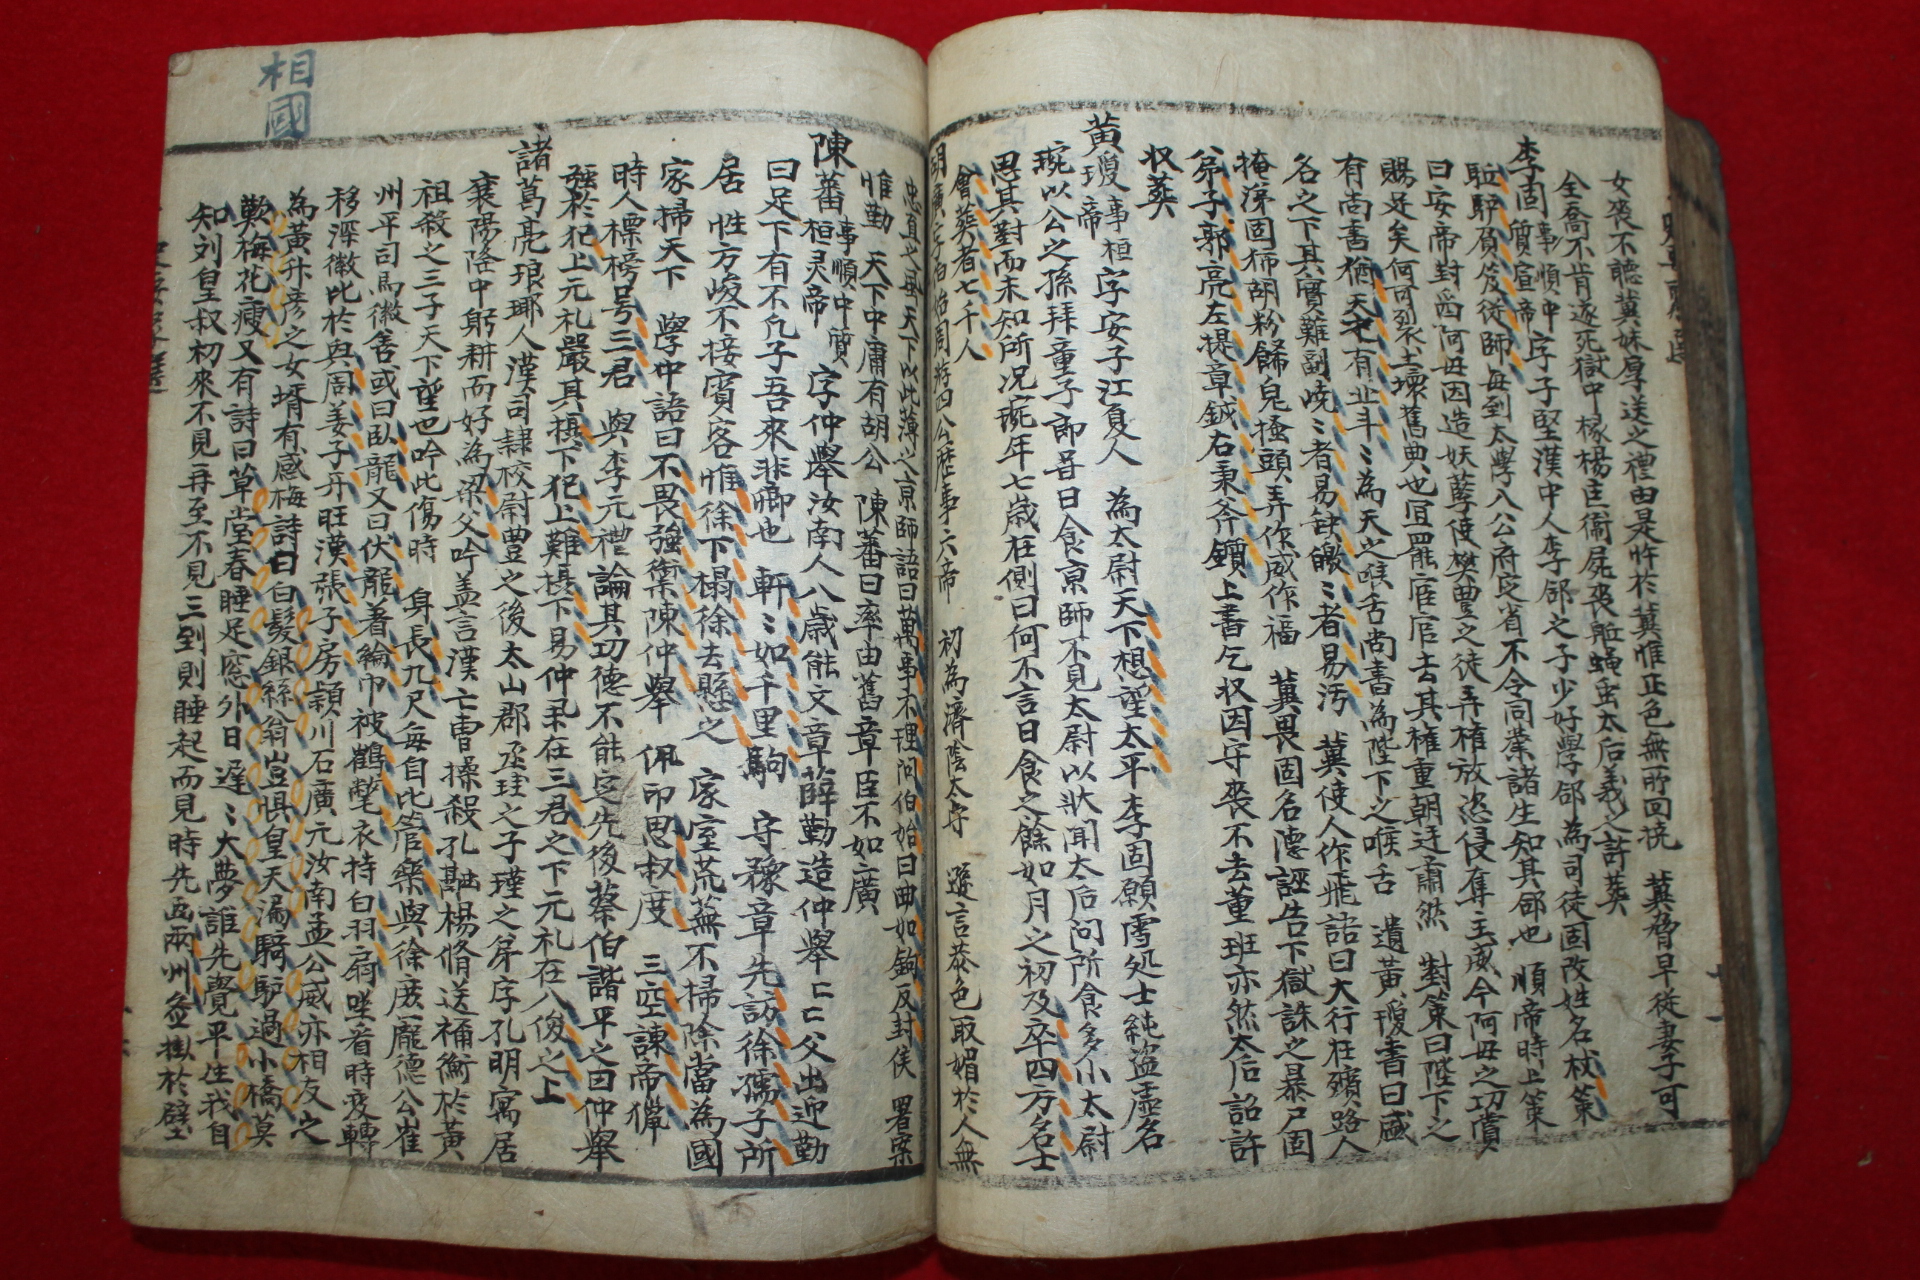 女喪不聽冀妹厚送之禮由是忤於冀惟正色無所回撓 冀脅早從妻子可
全喬不肯遂死獄中椽楊匡衛屍喪驅蠅虫太后義之許葬
李固事順冲質 字子堅漢中人李郃之子少好學郃為司徒固改姓名杖策
驅驢負笈從師每到太學入公府定省不令同業諸生知其郃也 順帝時上策
曰安帝封爵阿母因造妖孽使樊豊之徒弄權放恣侵奪主威今阿母之功賞
賜足矣何可裂土壞舊典也宜罷宦官去其權重朝廷肅然 對策曰陛下之
有尚書猶天之有北斗〻為天之喉舌尚書為陛下之喉舌 遺黃瓊書曰盛
名之下其實難副嶢〻者易缺皦〻者易汚 冀使人作飛語曰大行在殯路人
掩涕固獨胡粉餙皃搔頭弄作威作福 冀畏固名德誣告下獄誅之暴尸固
弟子郭亮左提章鉞右秉斧鑕上書乞収因守喪不去董班亦然太后詔許
収葬
黃瓊事桓帝 字安子江夏人 為太尉天下想望太平李固願雪処士純盜虛名
琬以公之孫拜童子郎昔日食京師不見太尉以狀聞太后问所食多小太尉
思其對而未知所况琬年七歲在側曰何不言日食之餘如月之初及卒四方名士
會葬者七千人
胡廣字伯始周將四公歷事六帝 初為濟陰太守 遜言恭色取媚於人無
忠直之 天下以此薄之京師語曰萬事不理问伯始曰曲如鉤反封侯 署案
惟勤 天下中庸有胡公 陳蕃曰率由舊章臣不如廣
陳蕃事順冲質桓灵帝 字仲舉汝南人八歲能文章薛勤造仲舉〻〻父出迎勤
曰足下有不凡子吾來非卿也 軒〻如千里駒 守豫章先訪徐孺子所
居 性方峻不接賓客惟徐下榻徐去懸之 家室荒蕪不掃除當為國
家掃天下 學中語曰不畏強禦陳仲舉 佩印思叔度 三空諫帝獵
時人標榜号三君 與李元禮論其功德不能定先後蔡伯諧平之曰仲舉
強於犯上元礼嚴其攝下犯上難攝下易仲舉在三君之下元礼在八俊之上
諸葛亮琅琊人漢司隸校尉豊之後太山郡丞珪之子瑾之弟字孔明寓居
襄陽隆中躬耕而好為梁父吟盖言漢亡曹操殺孔融楊脩送禰衡於黃
祖殺之三子天下望也吟此傷時 身長九尺每自比管樂與徐庶龐德公崔
州平司馬徽舍或曰臥龍又曰伏龍着綸巾被鶴氅衣持白羽扇坐看時变轉
移深徽比於興周姜子牙旺漢張子房穎川石廣元汝南孟公威亦相友之
為黃升彦之女壻有感梅詩曰白髮銀絲翁豈惧皇天漏騎驴過小橋莫
歎梅花瘦又有詩曰草堂春睡足窓外日遲〻大夢誰先覺平生我自
知刘皇叔初來不見再至不見三到則睡起而見時先画兩州登掛於壁
相國